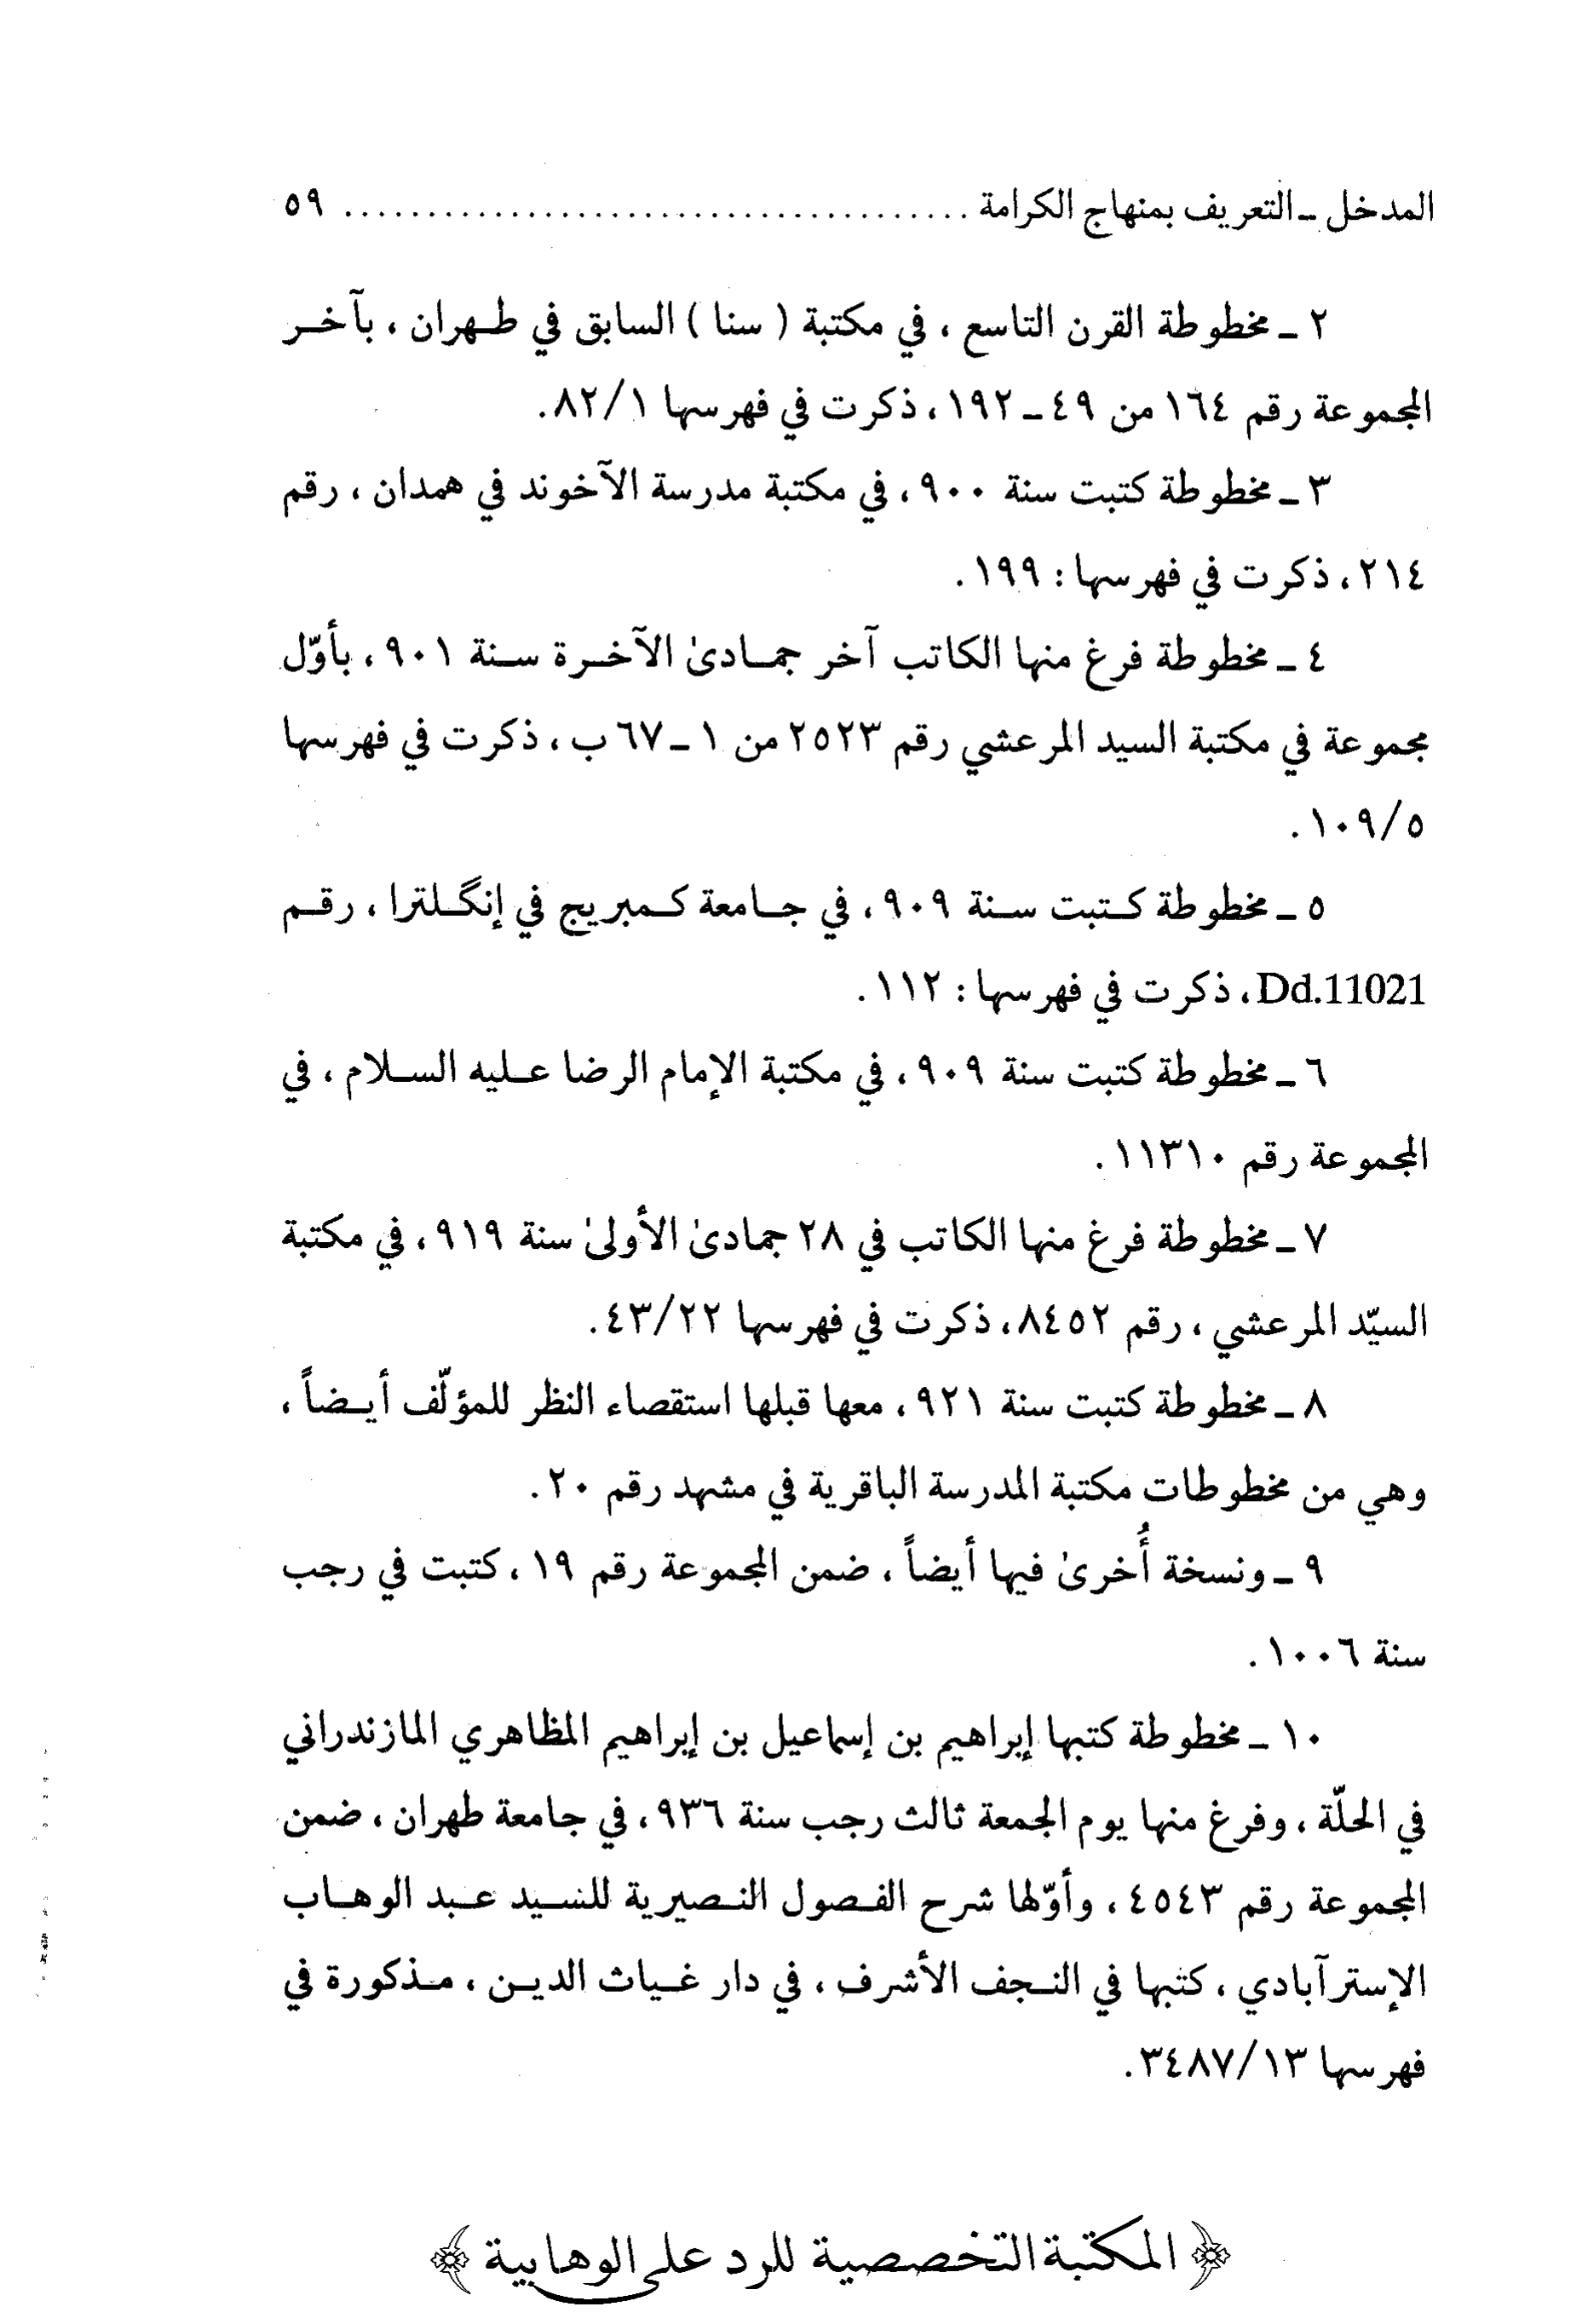 المدخل ـ التعريف بمنهاج الكرامة ...................................... ٥٩
٢ ـ مخطوطة القرن التاسع ، في مكتبة ( سنا ) السابق في طهران ، بآخر
المجموعة رقم ١٦٤ من ٤٩ ـ ١٩٢ ، ذكرت في فهرسها ٨٢/١.
٣ ـ مخطوطة كتبت سنة ٩٠٠ ، في مكتبة مدرسة الآخوند في همدان ، رقم
٢١٤ ، ذكرت في فهرسها : ١٩٩.
٤ ـ مخطوطة فرغ منها الكاتب آخر جمادىٰ الآخرة سنة ٩٠١ ، بأوّل
مجموعة في مكتبة السيد المرعشي رقم ٢٥٢٣ من ١ ـ ٦٧ ب ، ذكرت في فهرسها
١٠٩/٥.
٥ ـ مخطوطة كتبت سنة ٩٠٩ ، في جامعة كمبريج في إنگلترا ، رقم
Dd.11021 ، ذكرت في فهرسها : ١١٢.
٦ ـ مخطوطة كتبت سنة ٩٠٩ ، في مكتبة الإمام الرضا عليه السلام ، في
المجموعة رقم ١١٣١٠.
٧ ـ مخطوطة فرغ منها الكاتب في ٢٨ جمادىٰ الأولىٰ سنة ٩١٩ ، في مكتبة
السيّد المرعشي ، رقم ٨٤٥٢ ، ذكرت في فهرسها ٤٣/٢٢.
٨ ـ مخطوطة كتبت سنة ٩٢١ ، معها قبلها استقصاء النظر للمؤلّف أيضاً ،
وهي من مخطوطات مكتبة المدرسة الباقرية في مشهد رقم ٢٠.
٩ ـ ونسخة أُخرىٰ فيها أيضاً ، ضمن المجموعة رقم ١٩ ، كتبت في رجب
سنة ١٠٠٦.
١٠ ـ مخطوطة كتبها إبراهيم بن إسماعيل بن إبراهيم المظاهري المازندراني
في الحلّة ، وفرغ منها يوم الجمعة ثالث رجب سنة ٩٣٦ ، في جامعة طهران ، ضمن
المجموعة رقم ٤٥٤٣ ، وأوّلها شرح الفصول النصيرية للسيد عبد الوهاب
الإسترآبادي ، كتبها في النجف الأشرف ، في دار غياث الدين ، مذكورة في
فهرسها ٣٤٨٧/١٣.
﴿ المكتبة التخصصية للرد على الوهابية ﴾